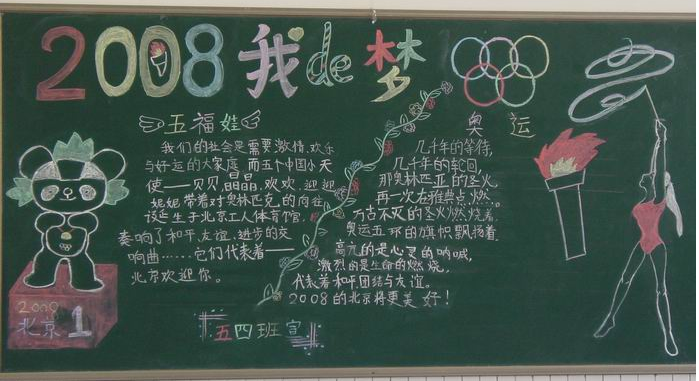 2008 我de梦
五福娃
我们的社会是需要激情、欢乐
与好运的大家庭,而五个中国小天
使——贝贝,晶晶,欢欢,迎迎
妮妮带着对奥林匹克的向往
诞生于北京工人体育馆,
奏响了和平、友谊、进步的交
响曲……它们代表着——
北京欢迎你。
奥运
几千年的等待,
几千年的轮回,
那奥林匹亚的圣火,
再一次在雅典点燃。
万古不灭的圣火燃烧着,
奥运五环的旗帜飘扬着,
高亢的是心灵的呐喊,
激烈的是生命的燃烧,
代表着和平团结与友谊。
2008的北京将更美好!
2008
北京 1
五四班宣